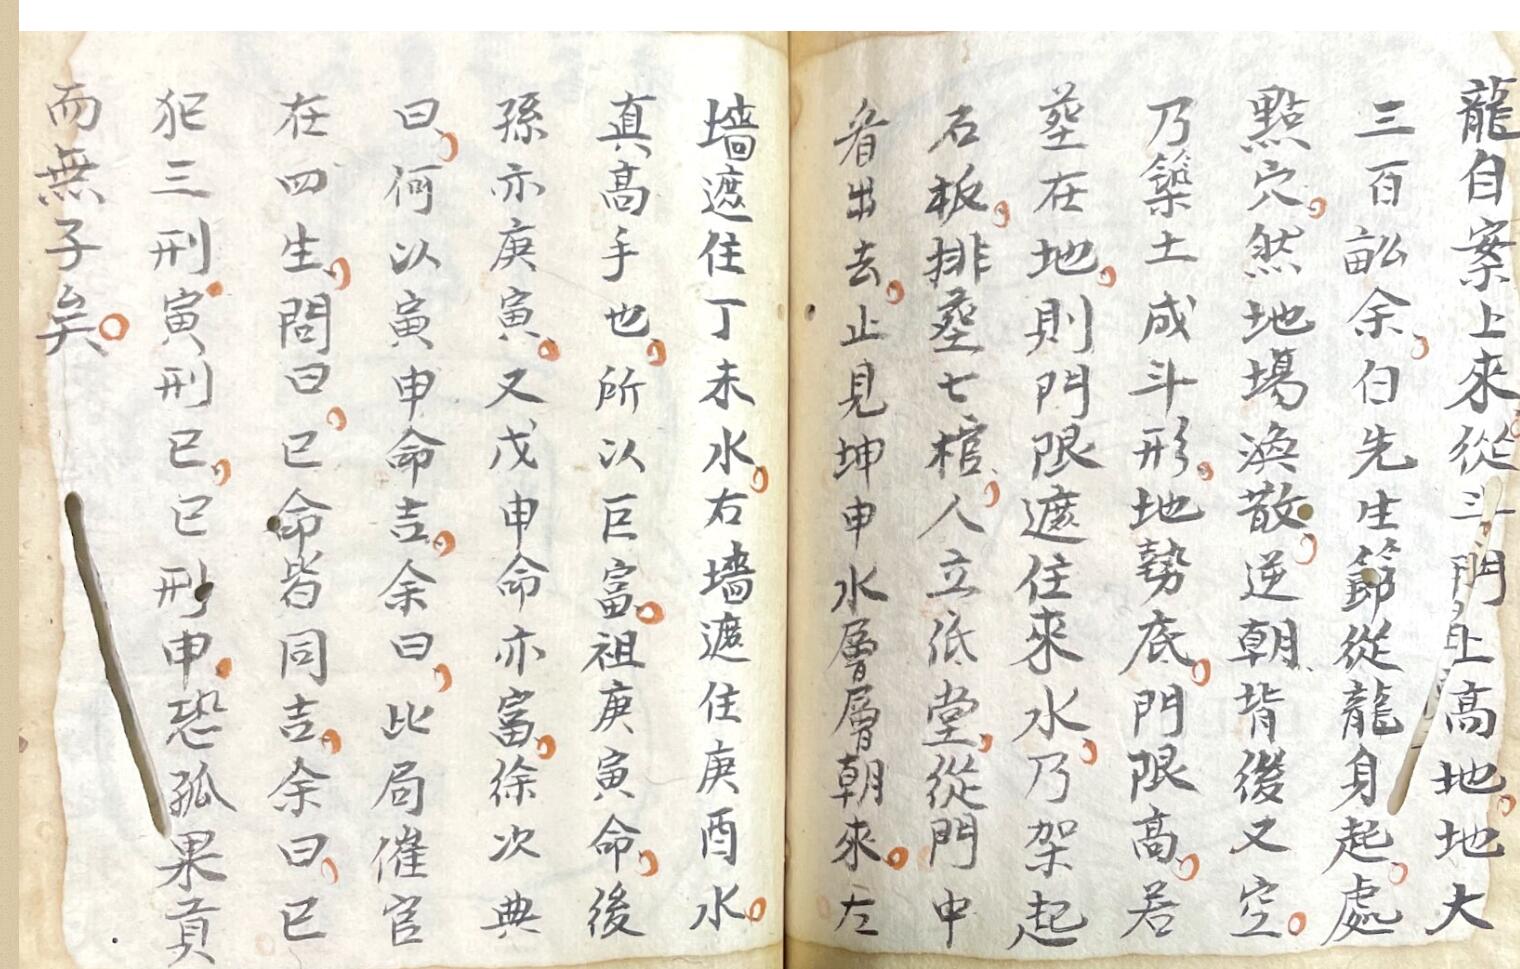 龍自案上來。從斗門上高地。地大
三百畆余。白先生節從龍身起。處
點穴。然地場渙散。逆朝背後又空。
乃築土成斗形。地勢底。門限高。若
塟在地。則門限遮住來水。乃架起
石板。排塟七棺。人立低堂。從門中
看出去。止見坤申水層層朝來。左
墙遮住丁未水。右墙遮住庚酉水。
真高手也。所以巨富。祖庚寅命。後
孫亦庚寅。又戊申命亦富。徐次典
曰。何以寅申命吉。余曰。此局催官
在四生。問曰。巳命皆同吉。余曰。巳
犯三刑。寅刑巳。巳刑申。恐孤果貢
而無子矣。